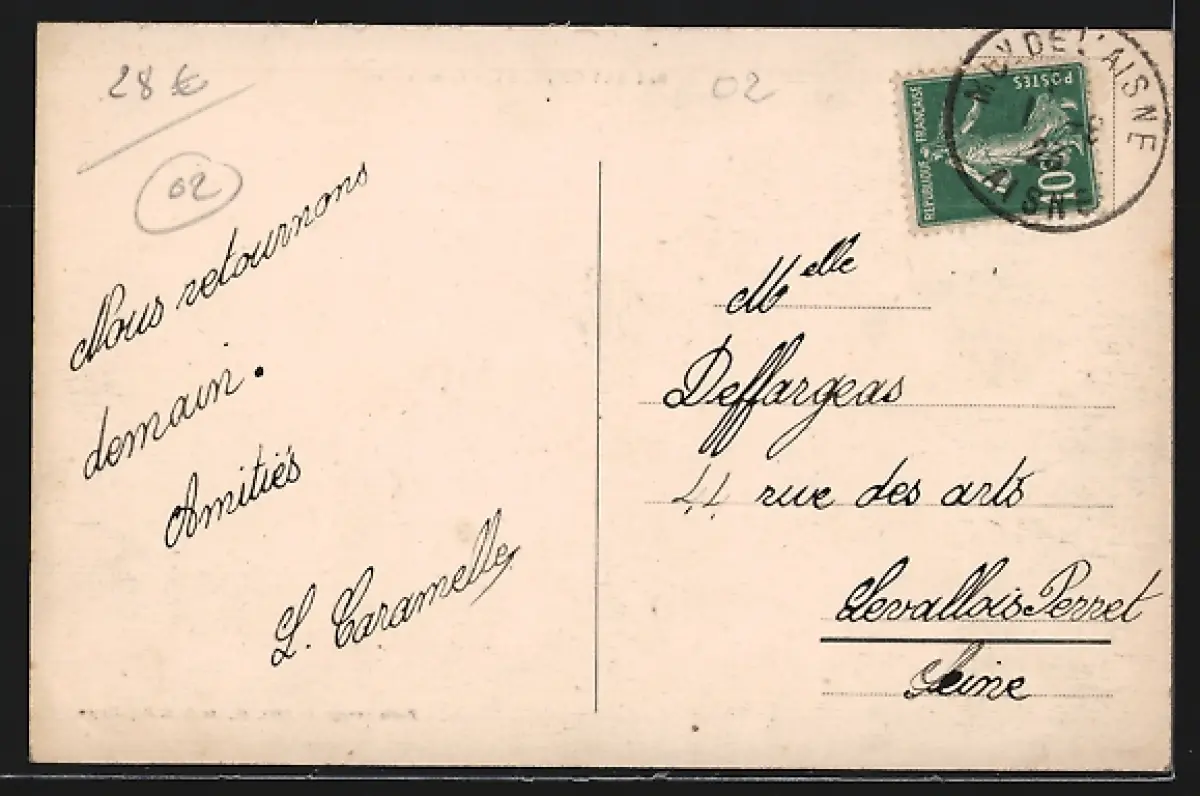 28 €
02
02
Nous retournons
demain.
Amitiés
L. Caramelle
MOY DE L'AISNE
AISNE
POSTES
REPUBLIQUE FRANÇAISE
10
Melle
Deffargeas
rue des arts
Levallois Perret
Seine